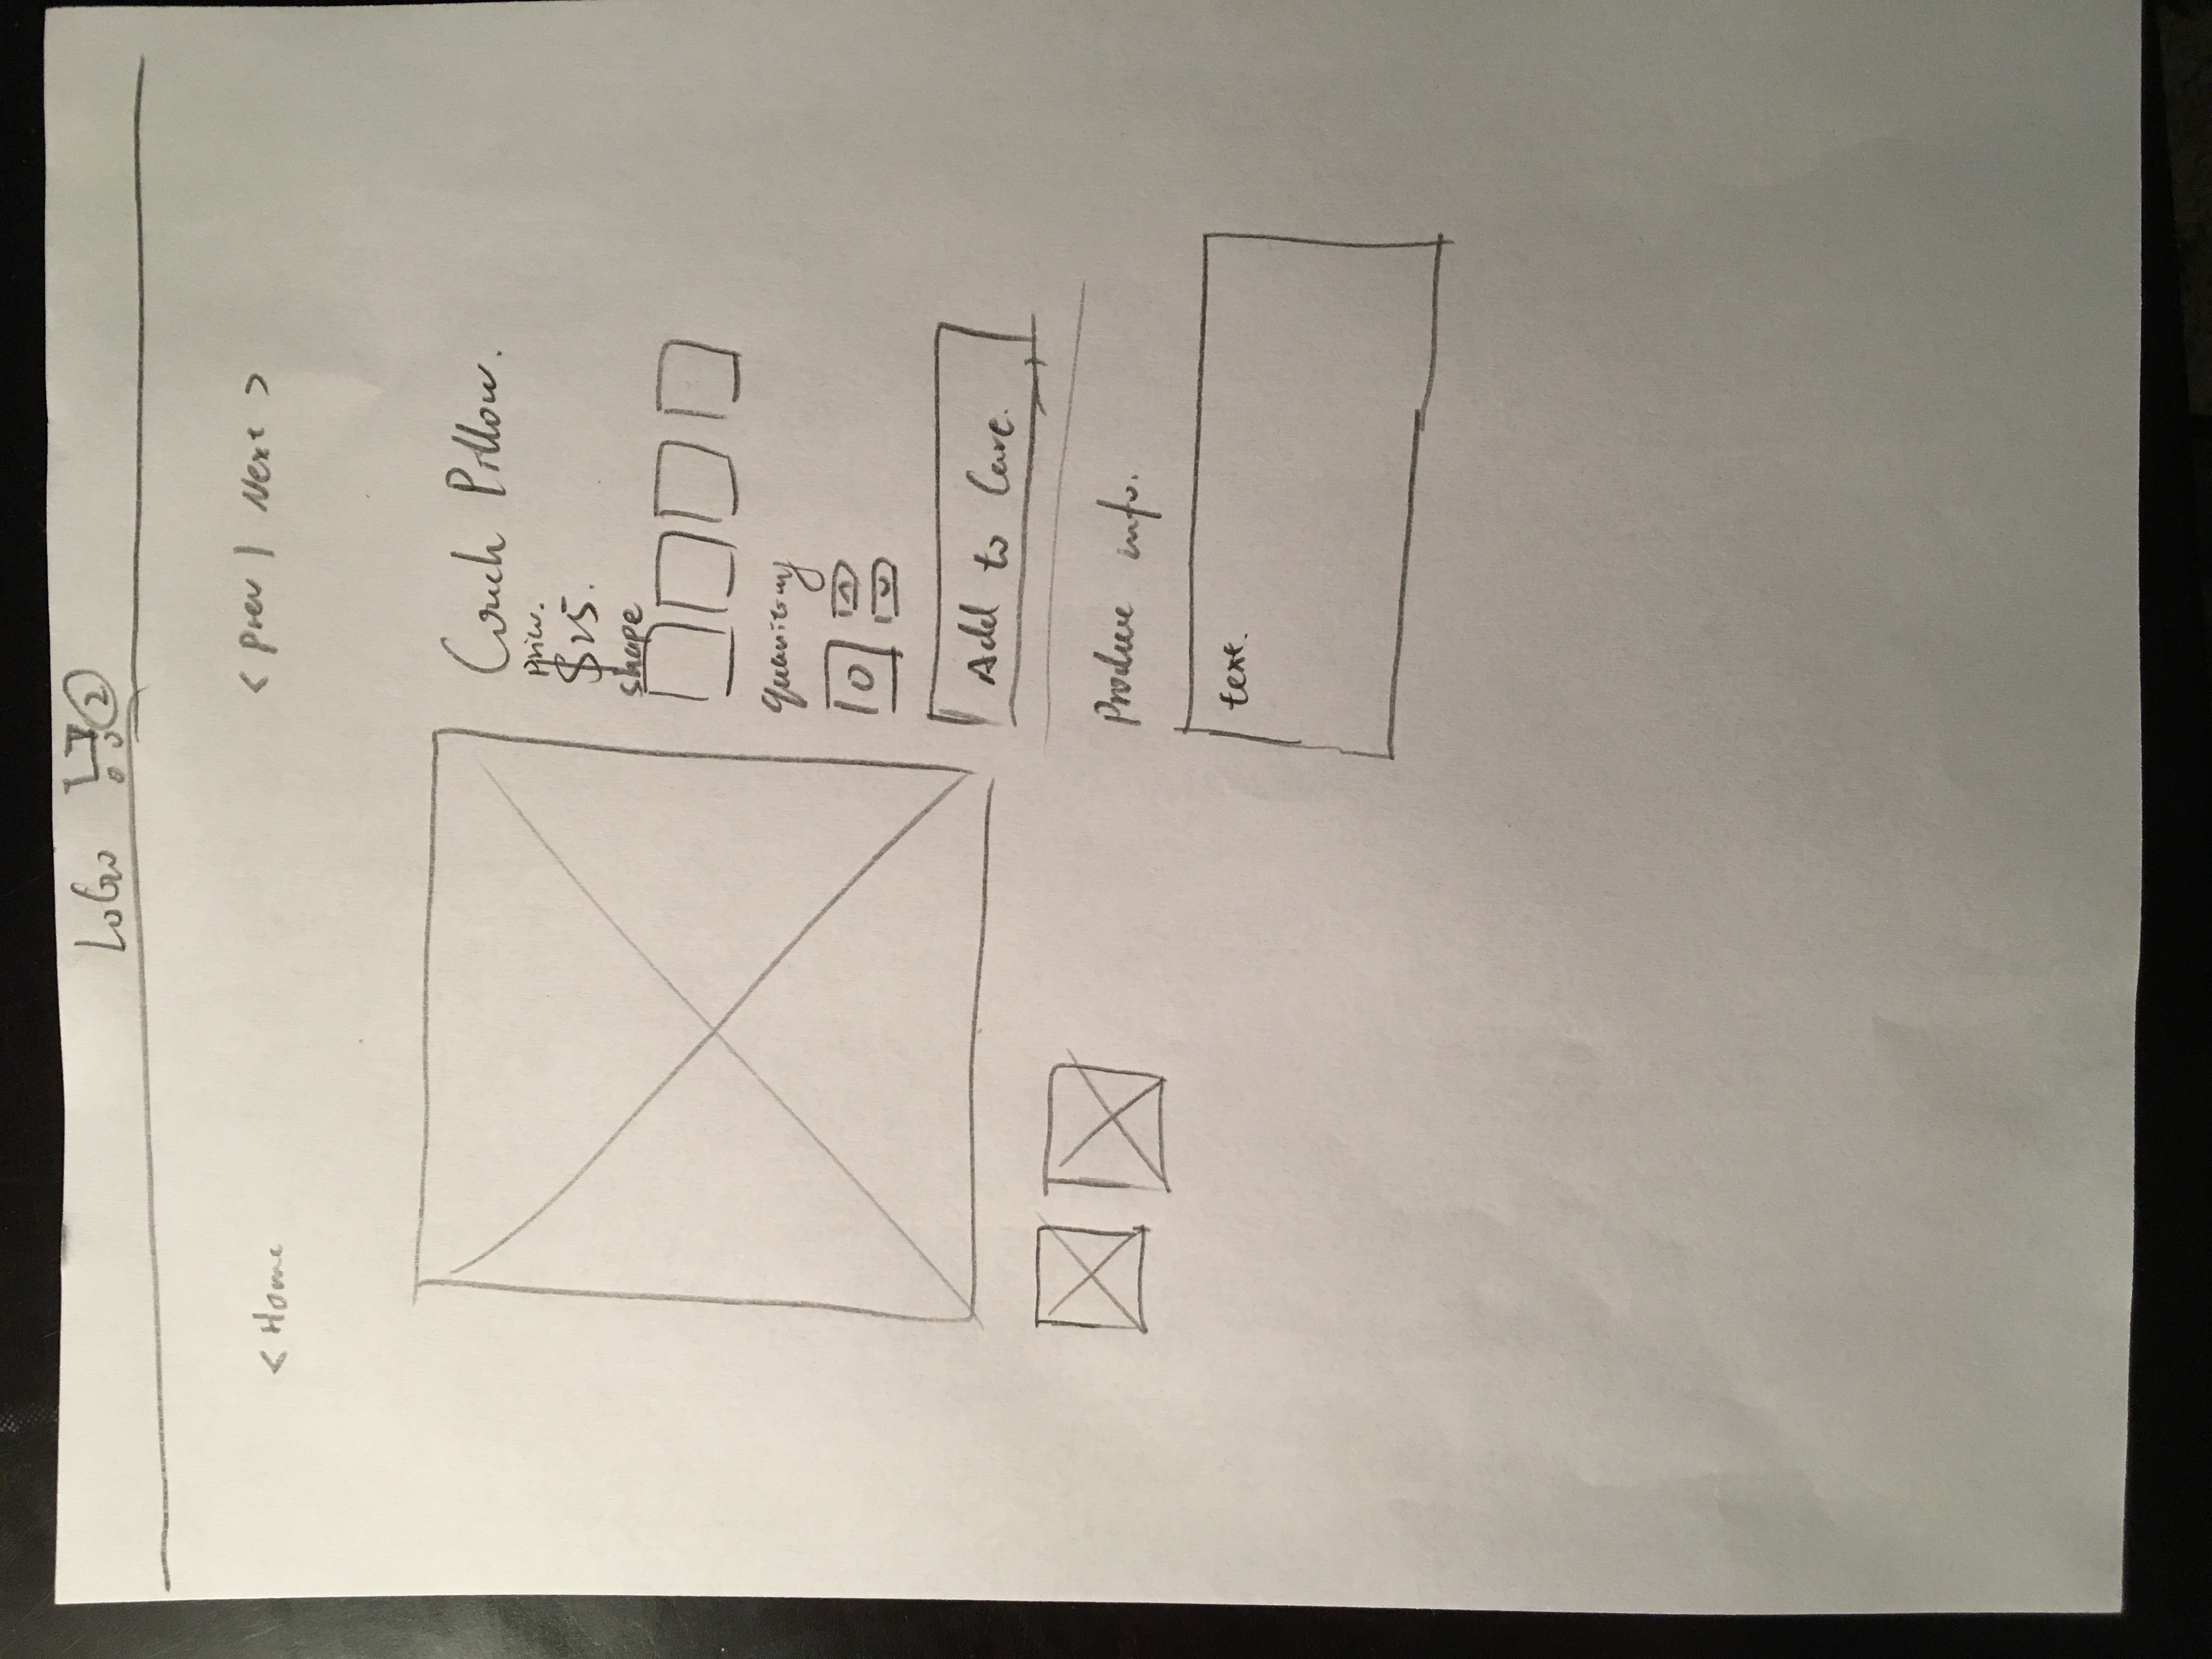 LoGo 2
< Home
< Prev | Next >
Couch Pillow.
Price.
$25.
shape
quantity
0
Add to Cart.
Product info.
text.